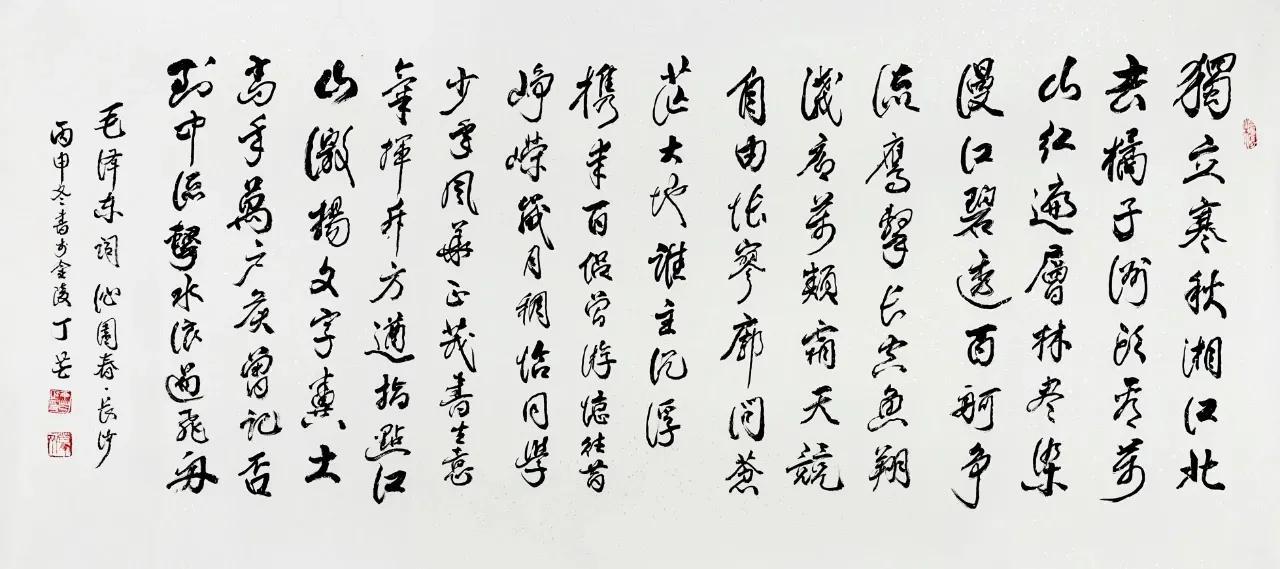 獨立寒秋湘江北
去橘子洲頭看萬
山红遍層林尽染
漫江碧透百舸争
流鹰擊长空魚翔
淺底萬類霜天競
自由怅寥廓問蒼
茫大地誰主沉浮
携来百侣曾游憶往昔
峥嵘歲月稠恰同學
少年風華正茂書生意
氣揮斥方遒指點江
山激揚文字糞土
當年萬户侯曾记否
到中流擊水浪遏飛舟
毛泽东词沁園春·長沙
丙申冬書於金陵丁芒